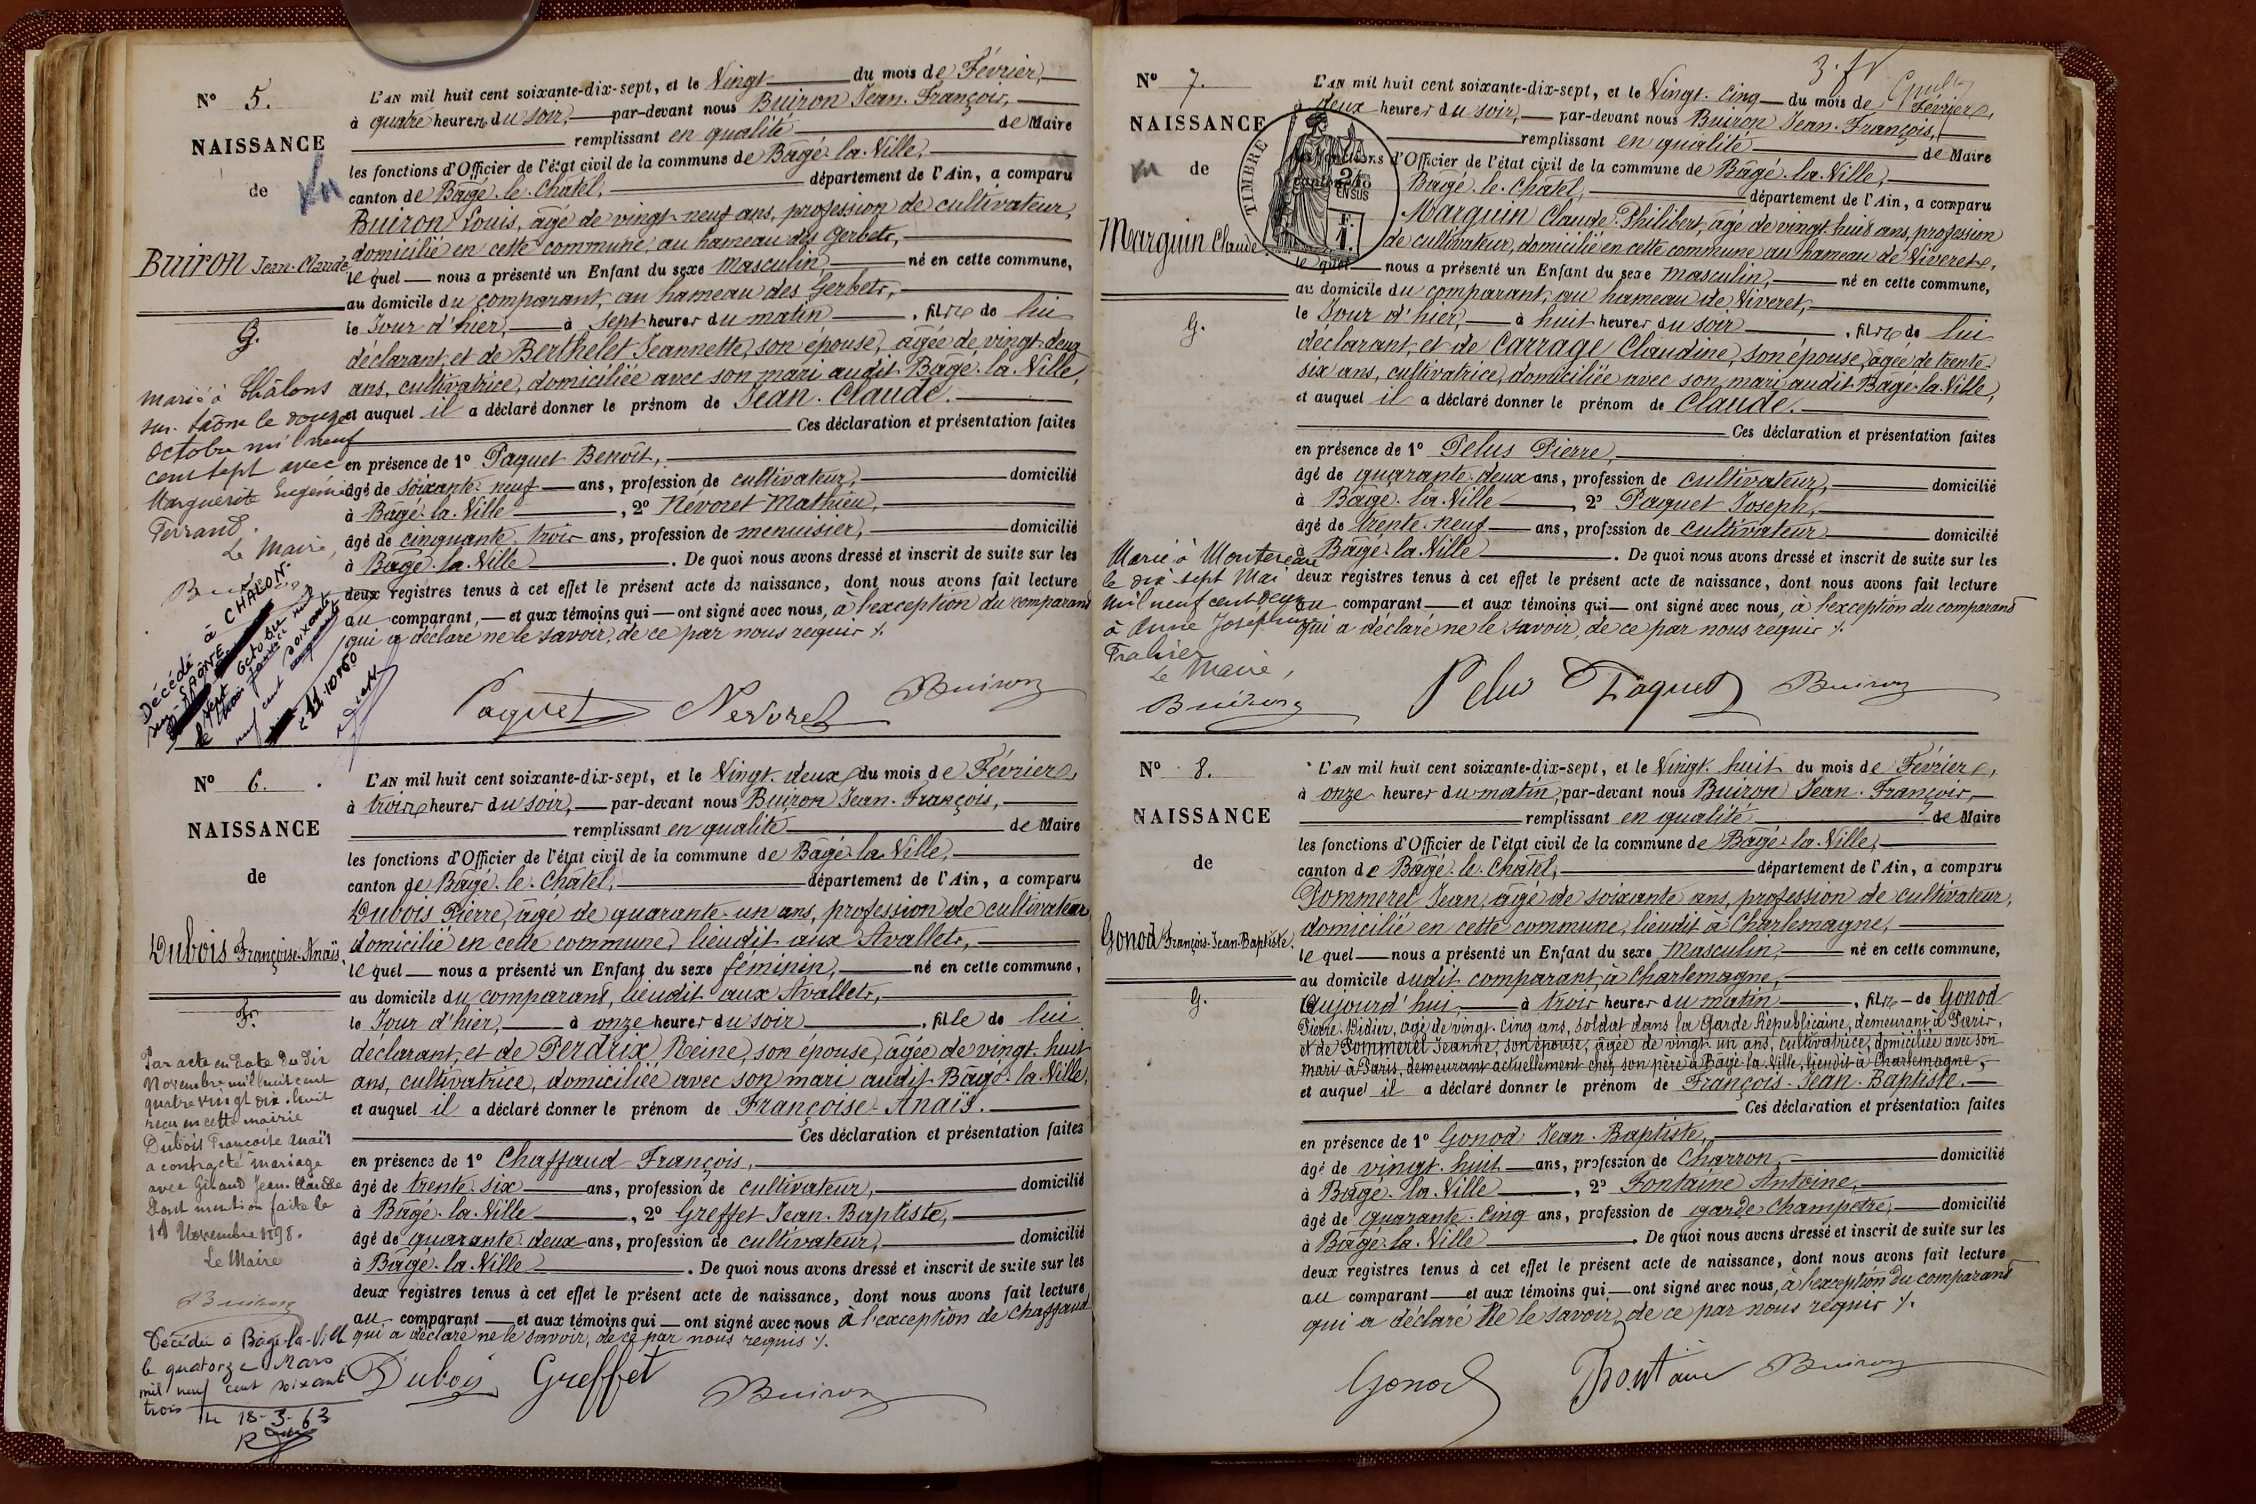 N° 5.
NAISSANCE
de
Buiron Jean-Claude
G.
Marié à Châlons
sur Saône le douze
Octobre mil neuf
cent sept avec
Marguerite Eugénie
Ferrand.
Le Maire,
Buiron
Décédé à CHALON-
sur-SAÔNE
le sept Octobre mil
neuf cent soixante
11.10.1960
L'AN mil huit cent soixante-dix-sept, et le Vingt du mois de Février,
à quatre heures du soir, par-devant nous Buiron Jean-François,
remplissant en qualité de Maire
les fonctions d'Officier de l'état civil de la commune de Bâgé-la-Ville,
canton de Bâgé-le-Châtel, département de l'Ain, a comparu
Buiron Louis, âgé de vingt-neuf ans, profession de cultivateur,
domicilié en cette commune au hameau des Gerbets,
le quel nous a présenté un Enfant du sexe masculin, né en cette commune,
au domicile du comparant, au hameau des Gerbets,
le Jour d'hier, à sept heures du matin, fils de lui
déclarant, et de Berthelet Jeannette, son épouse, âgée de vingt-deux
ans, cultivatrice, domiciliée avec son mari audit Bâgé-la-Ville,
et auquel il a déclaré donner le prénom de Jean-Claude.
Ces déclaration et présentation faites
en présence de 1° Paquet Benoît,
âgé de soixante-neuf ans, profession de cultivateur, domicilié
à Bâgé-la-Ville, 2° Névoret Mathieu,
âgé de cinquante-trois ans, profession de menuisier, domicilié
à Bâgé-la-Ville. De quoi nous avons dressé et inscrit de suite sur les
deux registres tenus à cet effet le présent acte de naissance, dont nous avons fait lecture
au comparant, et aux témoins qui ont signé avec nous, à l'exception du comparant
qui a déclaré ne le savoir, de ce par nous requis ./.
Paquet Nevoret Buiron
N° 6.
NAISSANCE
de
Dubois Françoise-Anaïs.
F.
Par acte en date du dix
Novembre mil huit cent
quatre vingt dix-huit
reçu en cette mairie
Dubois Françoise Anaïs
a contracté mariage
avec Giraud Jean-Claude
Dont mention faite le
11 Novembre 1898.
Le Maire
Buiron
Décédée à Bâgé-la-Ville
le quatorze Mars
mil neuf cent soixante
trois
Le 18-3-63
L'AN mil huit cent soixante-dix-sept, et le Vingt-deux du mois de Février,
à trois heures du soir, par-devant nous Buiron Jean-François,
remplissant en qualité de Maire
les fonctions d'Officier de l'état civil de la commune de Bâgé-la-Ville,
canton de Bâgé-le-Châtel, département de l'Ain, a comparu
Dubois Pierre, âgé de quarante-un ans, profession de cultivateur
domicilié en cette commune, lieudit aux Avallets,
le quel nous a présenté un Enfant du sexe féminin, né en cette commune,
au domicile du comparant, lieudit aux Avallets,
le Jour d'hier, à onze heures du soir, fille de lui
déclarant, et de Perdrix Reine, son épouse, âgée de vingt-huit
ans, cultivatrice, domiciliée avec son mari audit Bâgé-la-Ville,
et auquel il a déclaré donner le prénom de Françoise-Anaïs.
Ces déclaration et présentation faites
en présence de 1° Chaffaud François,
âgé de trente-six ans, profession de cultivateur, domicilié
à Bâgé-la-Ville, 2° Greffet Jean-Baptiste,
âgé de quarante-deux ans, profession de cultivateur, domicilié
à Bâgé-la-Ville. De quoi nous avons dressé et inscrit de suite sur les
deux registres tenus à cet effet le présent acte de naissance, dont nous avons fait lecture
au comparant et aux témoins qui ont signé avec nous à l'exception de Chaffaud
qui a déclaré ne le savoir, de ce par nous requis ./.
Dubois Greffet Buiron
3.
N° 7.
NAISSANCE
de
Marguin Claude.
G.
TIMBRE
Marié à Montereau
le dix-sept Mai
mil neuf cent deux
à Anne Josephine
Le Maire,
Buiron
L'AN mil huit cent soixante-dix-sept, et le Vingt-cinq du mois de Février,
à deux heures du soir, par-devant nous Buiron Jean-François,
remplissant en qualité de Maire
les fonctions d'Officier de l'état civil de la commune de Bâgé-la-Ville,
canton de Bâgé-le-Châtel, département de l'Ain, a comparu
Marguin Claude-Philibert, âgé de vingt-huit ans, profession
de cultivateur, domicilié en cette commune au hameau de Viveret,
le quel nous a présenté un Enfant du sexe masculin, né en cette commune,
au domicile du comparant, au hameau de Viveret,
le Jour d'hier, à huit heures du soir, fils de lui
déclarant, et de Carrage Claudine, son épouse, âgée de trente-
six ans, cultivatrice, domiciliée avec son mari audit Bâgé-la-Ville,
et auquel il a déclaré donner le prénom de Claude.
Ces déclaration et présentation faites
en présence de 1° Pelus Pierre,
âgé de quarante-deux ans, profession de cultivateur, domicilié
à Bâgé-la-Ville, 2° Paquet Joseph,
âgé de trente-neuf ans, profession de cultivateur domicilié
à Bâgé-la-Ville. De quoi nous avons dressé et inscrit de suite sur les
deux registres tenus à cet effet le présent acte de naissance, dont nous avons fait lecture
au comparant et aux témoins qui ont signé avec nous, à l'exception du comparant
qui a déclaré ne le savoir, de ce par nous requis ./.
Pelus Paquet Buiron
N° 8.
NAISSANCE
de
Gonod François-Jean-Baptiste.
G.
L'AN mil huit cent soixante-dix-sept, et le Vingt-huit du mois de Février,
à onze heures du matin, par-devant nous Buiron Jean-François,
remplissant en qualité de Maire
les fonctions d'Officier de l'état civil de la commune de Bâgé-la-Ville,
canton de Bâgé-le-Châtel, département de l'Ain, a comparu
Pommeret Jean, âgé de soixante ans, profession de cultivateur,
domicilié en cette commune, lieudit à Charlemagne,
le quel nous a présenté un Enfant du sexe Masculin, né en cette commune,
au domicile dudit comparant, à Charlemagne,
Aujourd'hui, à trois heures du matin, fils de Gonod
Pierre-Didier, âgé de vingt-cinq ans, soldat dans la Garde Républicaine, demeurant à Paris,
et de Pommeret Jeanne, son épouse, âgée de vingt-un ans, cultivatrice, domiciliée avec son
mari à Paris, demeurant actuellement chez son père à Bâgé-la-Ville, lieudit à Charlemagne,
et auquel il a déclaré donner le prénom de François-Jean-Baptiste.
Ces déclaration et présentation faites
en présence de 1° Gonod Jean-Baptiste,
âgé de vingt-huit ans, profession de Charron, domicilié
à Bâgé-la-Ville, 2° Fontaine Antoine,
âgé de quarante-cinq ans, profession de garde champêtre, domicilié
à Bâgé-la-Ville. De quoi nous avons dressé et inscrit de suite sur les
deux registres tenus à cet effet le présent acte de naissance, dont nous avons fait lecture
au comparant et aux témoins qui ont signé avec nous, à l'exception du comparant
qui a déclaré ne le savoir, de ce par nous requis ./.
Gonod Fontaine Buiron